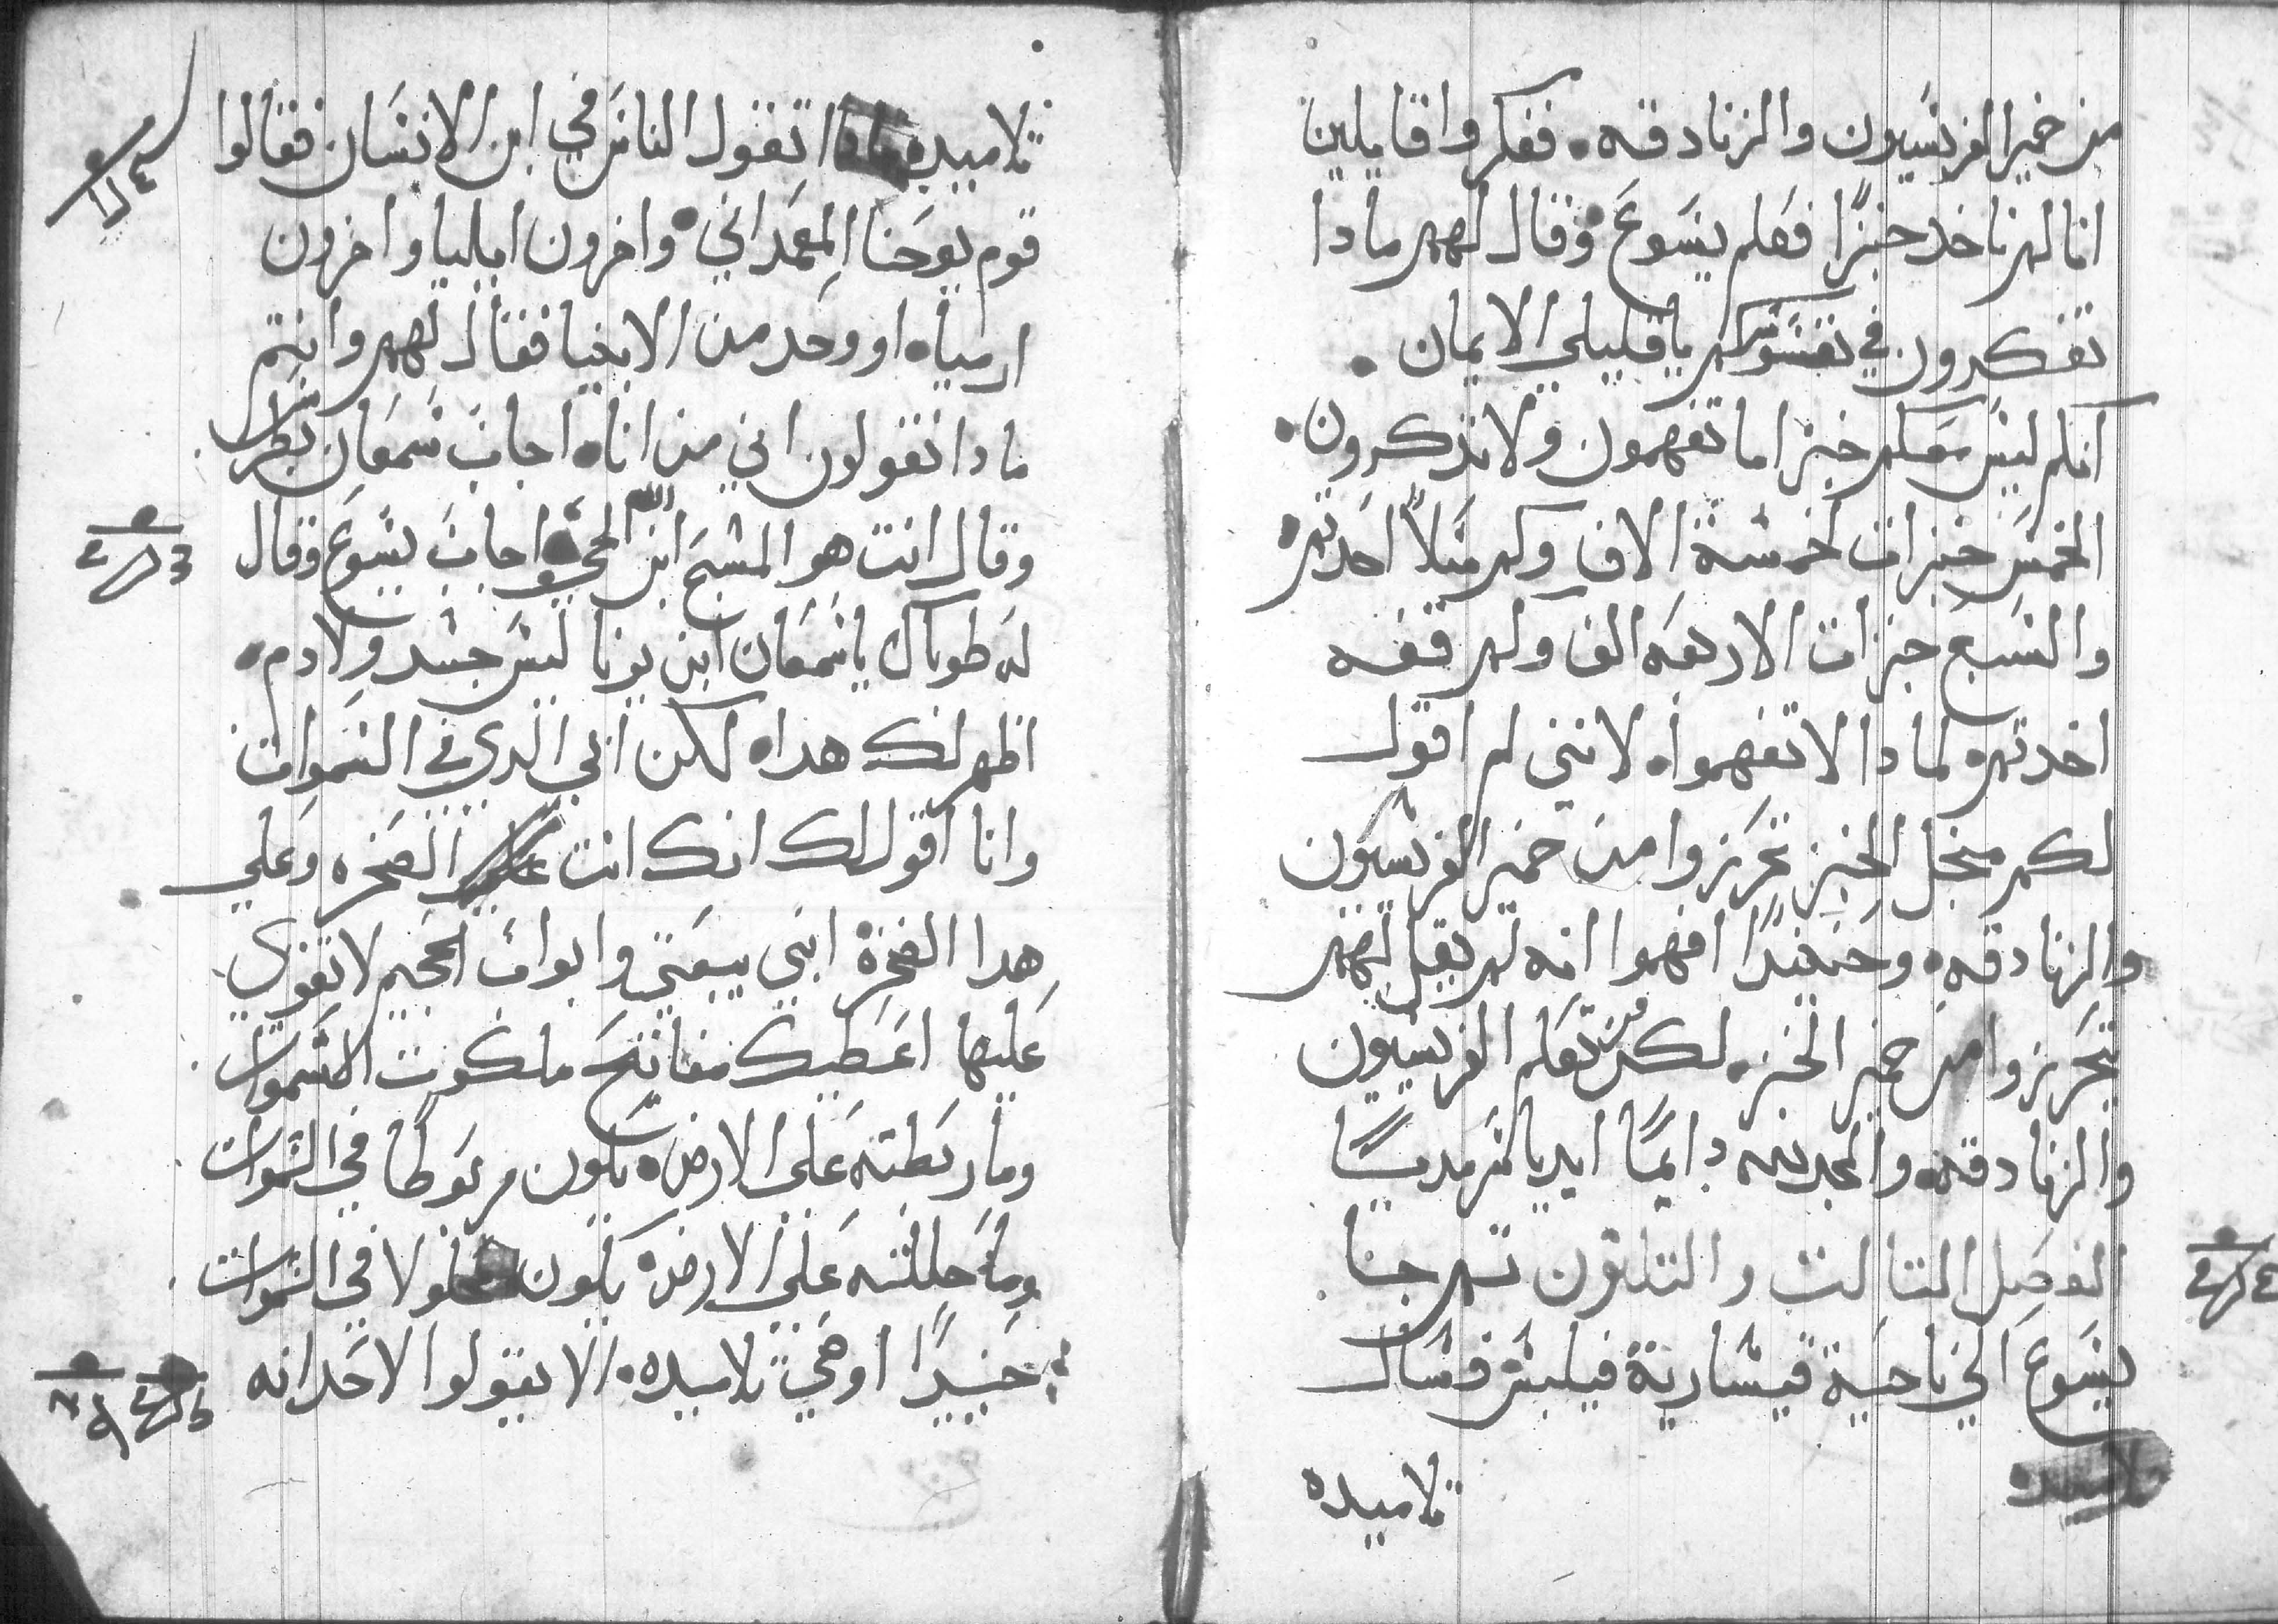 من خمير الفريسيون والزنادقه. ففكروا قايلين
انا لم ناخد خبزًا فعلم يسوع وقال لهم مادا
تفكرون في نفسوسكم يا قليلي الايمان.
انكم ليس معكم خبز اما تفهمون ولا تذكرون.
الخمس خبزات لخمسة الاف وكم سلاً اخدتم
والسبع خبزات الاربعه الف وكم قفه
اخدتم ولمادا لا تفهموا لانني لم اقول
لكم منجل الخبز تحرزوا من خمير الفريسيون
والزنادقه. وحينيدًا افهموا انه لم يقل لهم
تحرزوا من خمير الخبز. لكن من تعلم الفريسيون
والزنادقه والمجد لله دايمًا ابديا سرمديًا
الفصل التالت والتلتون تم جا
يسوع الي ناحية قيسارية فيلبس فسال
تلاميده
تلاميده مادا تقول الناس في ابن الانسان فقالوا
قوم يوحنا المعمداني واخرون ايليا واخرون
ارمياه او وحد من الانبيا فقال لهم وانتم
مادا تقولون اني من انا اجاب سمعان بطرس
وقال انت هو المسيح ابن الله الحي اجاب يسوع وقال
له طوباك يا سمعان ابن يونا ليس جسد ولا دم.
اظهر لك هدا لكن ابي الدي في السموات
وانا اقول لك انك انت الصخره وعلي
هدا الصخرة ابني بيعتي وابواب الجحيم لا تقوي
عليها اعطيك مفاتيح ملكوت السموات
وما ربطته علي الارض يكون مربوطا في السموات
وما حللته علي الارض يكون محلولا في السموات
حينيدًا اوصي تلاميده. الا يقولوا لاحد انه